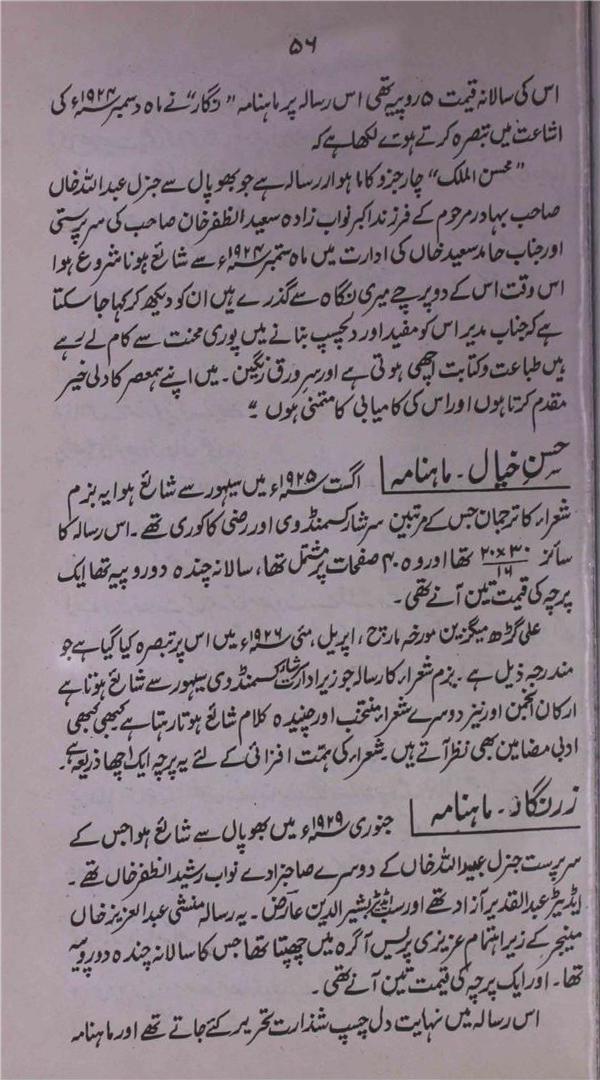 ۵۶
اس کی سالانہ قیمت ۵ روپیہ تھی اس رسالہ پر ماہنامہ ”نگار“ نے ماہ دسمبر ۱۹۲۴ء کی
اشاعت میں تبصرہ کرتے ہوئے لکھا ہے کہ
”محسن الملک“ چار جزو کا ماہوار رسالہ ہے جو بھوپال سے جنرل عبداللہ خاں
صاحب بہادر مرحوم کے فرزند اکبر نواب زادہ سعید الظفر خان صاحب کی سرپرستی
اور جناب حامد سعید خاں کی ادارت میں ماہ ستمبر ۱۹۲۴ء سے شائع ہونا شروع ہوا
اس وقت اس کے دو پرچے میری نگاہ سے گذرے ہیں ان کو دیکھ کر کہا جا سکتا
ہے کہ جناب مدیر اس کو مفید اور دلچسپ بنانے میں پوری محنت سے کام لے رہے
ہیں طباعت و کتابت اچھی ہوتی ہے اور سرورق رنگین۔ میں اپنے ہمعصر کا دلی خیر
مقدم کرتا ہوں اور اس کی کامیابی کا متمنی ہوں۔“
حسنِ خیال۔ ماہنامہ اگست ۱۹۲۵ء میں سیہور سے شائع ہوا یہ بزم
شعراء کا ترجمان جس کے مرتبین سرشار کسمنڈوی اور رضی کاکوری تھے۔ اس رسالہ کا
سائز ۲۰×۳۰/۱۶ تھا اور وہ ۴۰ صفحات پر مشتمل تھا، سالانہ چندہ دو روپیہ تھا ایک
پرچہ کی قیمت تین آنے تھی۔
علی گڑھ میگزین مورخہ مارچ، اپریل، مئی ۱۹۲۶ء میں اس پر تبصرہ کیا گیا ہے جو
مندرجہ ذیل ہے۔ بزم شعراء کا رسالہ جو زیر ادارت سرشار کسمنڈوی سیہور سے شائع ہوتا ہے
ارکان انجمن اور نیز دوسرے شعراء منتخب اور چنیدہ کلام شائع ہوتا رہتا ہے کبھی کبھی
ادبی مضامین بھی نظر آتے ہیں۔ شعراء کی ہمت افزائی کے لئے یہ پرچہ ایک اچھا ذریعہ ہے۔
زرنگار۔ ماہنامہ جنوری ۱۹۲۹ء میں بھوپال سے شائع ہوا جس کے
سرپرست جنرل عبیداللہ خاں کے دوسرے صاحبزادے نواب رشید الظفر خاں تھے۔
ایڈیٹر عبدالقدیر آزاد تھے اور سب ایڈیٹر بشیر الدین عارض۔ یہ رسالہ منشی عبدالعزیز خاں
مینجر کے زیر اہتمام عزیزی پریس آگرہ میں چھپتا تھا جس کا سالانہ چندہ دو روپیہ
تھا۔ اور ایک پرچہ کی قیمت تین آنے تھی۔
اس رسالہ میں نہایت دل چسپ شذارت تحریر کئے جاتے تھے اور ماہنامہ